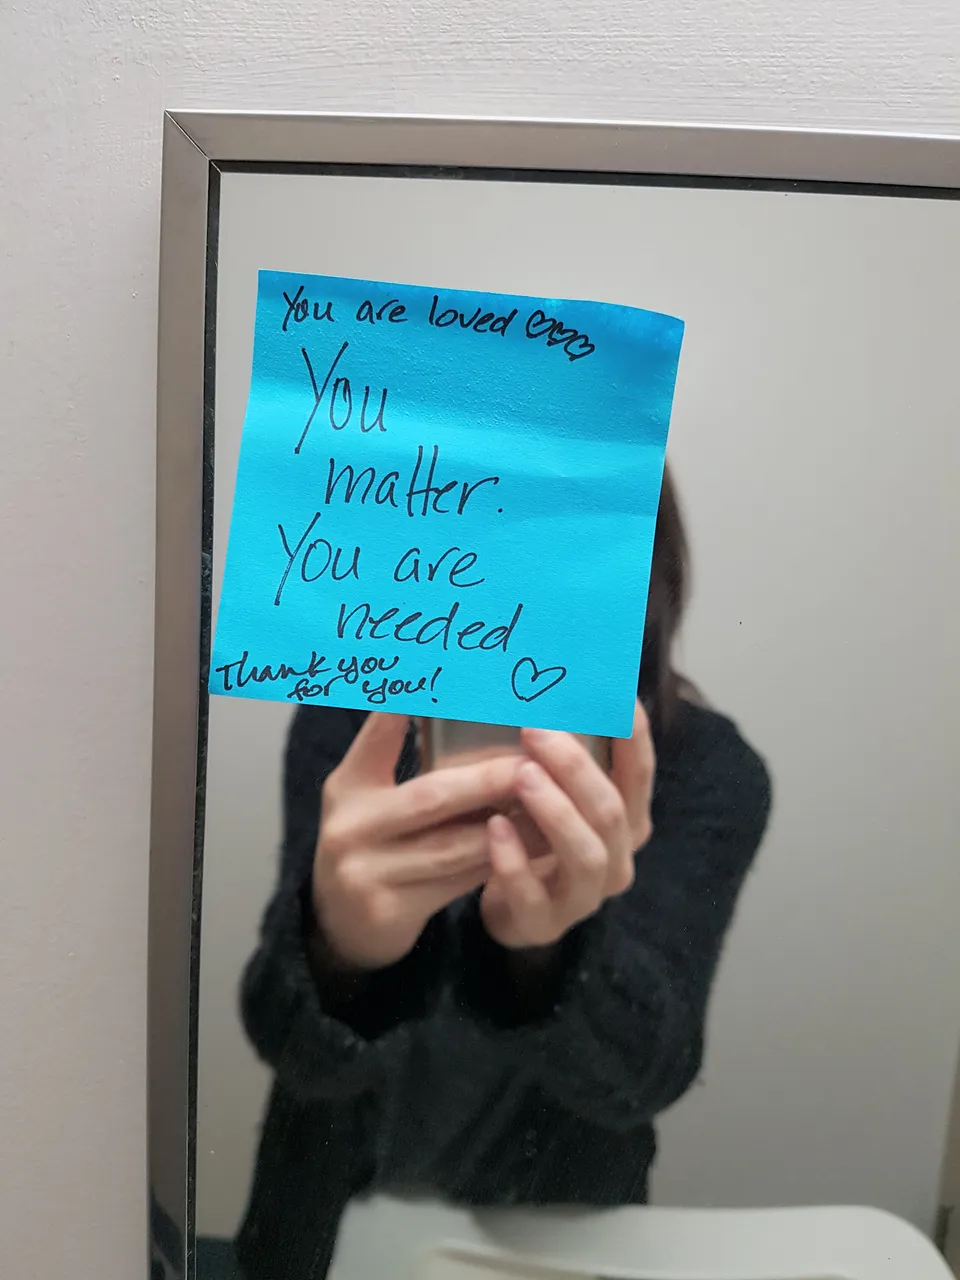 You are loved ♡♡♡
You
matter.
You are
needed
Thank you
for you! ♡